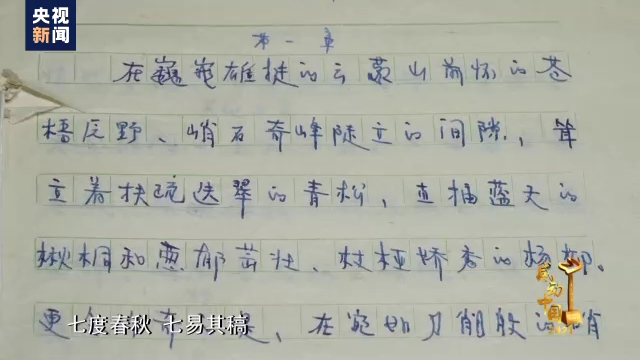 央视
新闻
第一章
在巍峨雄挺的云蒙山前怀的苍
野、峭石奇峰陡立的间隙，耸
立着扶疏迭翠的青松，直插蓝天的
楸桐和葱郁茁壮、枝桠娇秀的杨
更 在宛如刀削般的
七度春秋 七易其稿
感动
中国